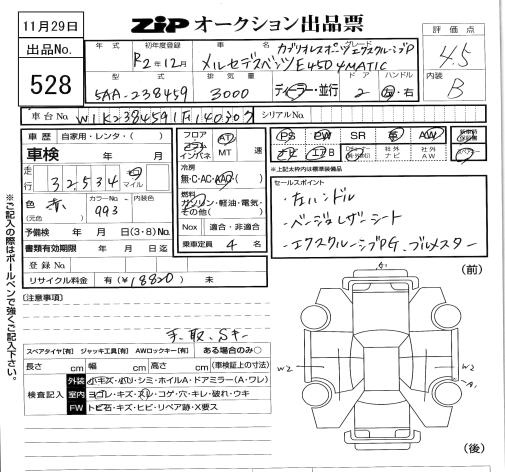 11月29日
ZIP オークション出品票
出品No.
528
年式
初年度登録
R2年12月
車名
グレード
カブリオレスポーツエクスクルーシブP
メルセデスベンツE450 4MATIC
評価点
4.5
内装
B
型式
5AA-238459
排気量
3000
ディーラー・並行
ドア
2
ハンドル
左・右
車台No.
W1K2384591F140307
シリアルNo.
車歴 自家用・レンタ・( )
車検 年 月
走行
32534
マイル
色
(元色)
赤
カラーNo.
993
内装色
予備検 年 月 日(3・8)No.
書類有効期限 年 月 日迄
登録No.
リサイクル料金 有(¥18820)
フロア
コラム
インパネ
AT
MT
速
冷房
無・C・AC・AAC
燃料
ガソリン・軽油・電気・
その他( )
Nox 適合・非適合
乗車定員 4 名
PS PW SR 革 AW
ナビ
社外
ナビ
社外
AW
※上記太枠内は標準装備品
セールスポイント
・左ハンドル
・ベージュレザーシート
・エクスクルーシブPG、ブルメスター
(注意事項)
手、取、Sキー
スペアタイヤ[有] ジャッキ工具[有] AWロックキー[有] ある場合のみ○
長さ cm 幅 cm 高さ cm (車検証上の寸法)
検査記入
外装 小キズ・小凹・シミ・ホイルA・ドアミラー(A・ワレ)
室内 ヨゴレ・キズ・スレ・コゲ・穴・キレ・破れ・ウキ
FW トビ石・キズ・ヒビ・リペア跡・X要ス
※ご記入の際はボールペンで強くご記入下さい。
(前)
W2
W2
A1
(後)